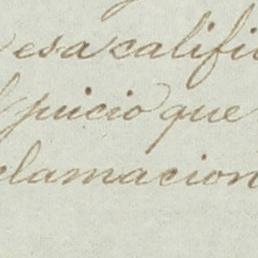 esa califi
juicio que
clamacion